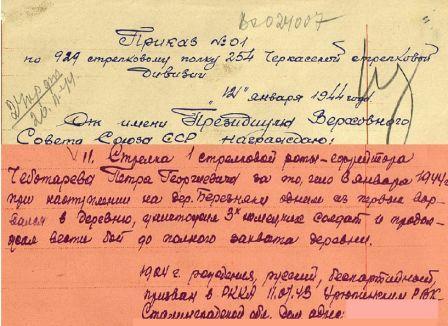 Во 024007
Приказ № 01
по 929 стрелковому полку 254 Черкасской стрелковой
дивизии
"12" января 1944 года.
От имени Президиума Верховного
Совета Союза ССР награждаю:
11. Стрелка 1 стрелковой роты - ефрейтора
Чеботарева Петра Георгиевича за то, что 8 января 1944 г.
при наступлении на дер. Березняки одним из первых вор-
вался в деревню, уничтожил 3х немецких солдат и продол-
жал вести бой до полного захвата деревни.
1904 г. рождения, русский, беспартийный,
призван в РККА 11.07.43 Урюпинским РВК
Сталинградской обл. Дом. адрес: